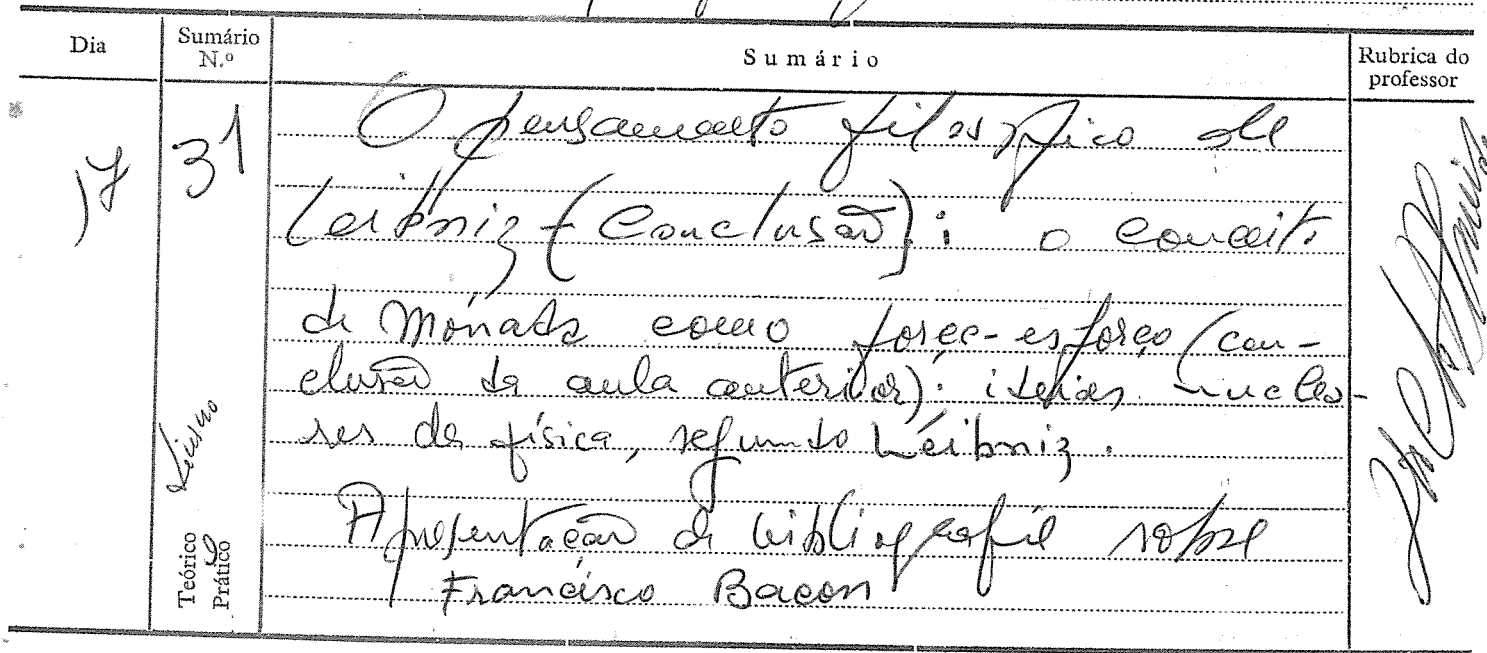 Dia
Sumário
N.º
Sumário
Rubrica do
professor
17
31
O pensamento filosófico de
Leibniz (Conclusão): o conceito
de Mónada como force-esforço (con-
clusão da aula anterior): ideias nuclea-
res da física, segundo Leibniz.
Apresentação de bibliografia sobre
Francisco Bacon
Teórico
Prático